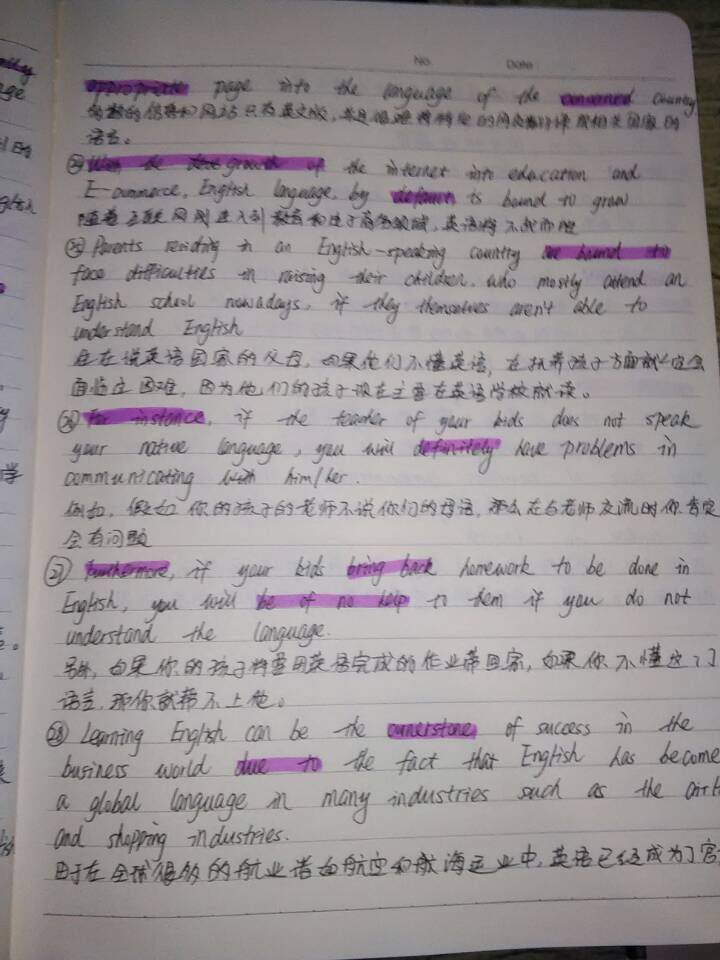 No.
Date
appropriate page into the language of the concerned country
的信息和网站只有英文版,并且很难将特定的网页翻译成相关国家的
语言。
With the growth of the internet into education and
E-commerce, English language, by default is bound to grow
随着互联网刚进入到教育和电子商务领域,英语将不
㉕ Parents residing in an English-speaking country are bound to
face difficulties in raising their children, who mostly attend an
English school nowadays, if they themselves aren't able to
understand English
住在说英语国家的父母,如果他们不懂英语,在抚养孩子方面就一定会
面临困难,因为他们的孩子现在主要在英语学校就读。
㉖ For instance, if the teacher of your kids does not speak
your native language, you will definitely have problems in
communicating with him/her.
例如,假如你的孩子的老师不说你们的母语,那么在与老师交流时你肯定
会有问题
㉗ Furthermore, if your kids bring back homework to be done in
English, you will be of no help to them if you do not
understand the language.
另外,如果你的孩子将要用英语完成的作业带回家,如果你不懂这门
语言,那你就帮不上他。
㉘ Learning English can be the cornerstone of success in the
business world due to the fact that English has become
a global language in many industries such as the
and shopping industries.
由于在全球很多的航业诸如航空和航海运业中,英语已经成为了官